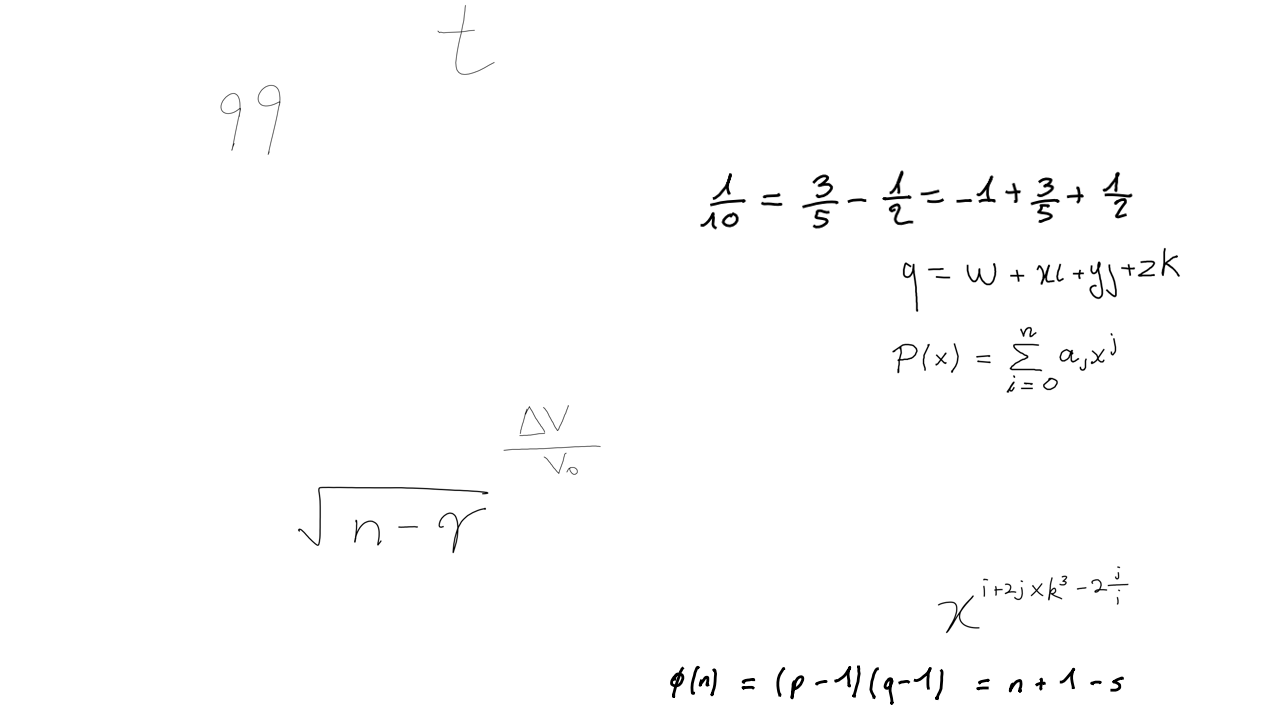 t
99
\frac{1}{10} = \frac{3}{5} - \frac{1}{2} = -1 + \frac{3}{5} + \frac{1}{2}
q = w + xi + yj + zk
P(x) = \sum_{i=0}^{n} a_j x^j
\frac{\Delta V}{V_0}
\sqrt{n - \gamma}
x^{i+2j \times k^3 - 2\frac{j}{i}}
\phi(n) = (p-1)(q-1) = n + 1 - s